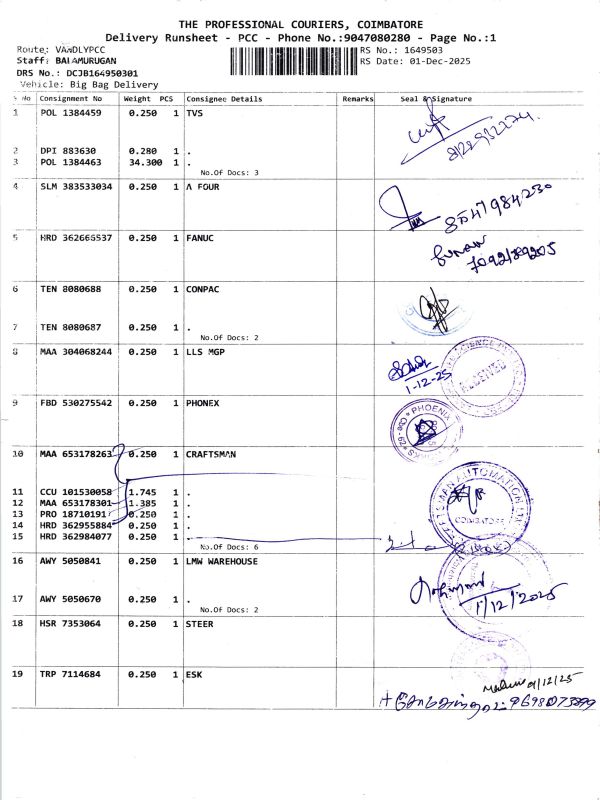 THE PROFESSIONAL COURIERS, COIMBATORE
Delivery Runsheet - PCC - Phone No.:9047080280 - Page No.:1
Route: VANDLYPCC
Staff: BALAMURUGAN
DRS No.: DCJB164950301
Vehicle: Big Bag Delivery
RS No.: 1649503
RS Date: 01-Dec-2025
S No Consignment No Weight PCS Consignee Details Remarks Seal & Signature
1 POL 1384459 0.250 1 TVS
2 DPI 883630 0.280 1 .
3 POL 1384463 34.300 1 .
No.Of Docs: 3
4 SLM 383533034 0.250 1 A FOUR
8547984230
5 HRD 362665537 0.250 1 FANUC
6 TEN 8080688 0.250 1 CONPAC
7 TEN 8080687 0.250 1 .
No.Of Docs: 2
8 MAA 304068244 0.250 1 LLS MGP
1-12-25
9 FBD 530275542 0.250 1 PHONEX
PHOENIX
10 MAA 653178263 0.250 1 CRAFTSMAN
11 CCU 101530058 1.745 1 .
12 MAA 653178301 1.385 1 .
13 PRO 18710191 0.250 1 .
14 HRD 362955884 0.250 1 .
15 HRD 362984077 0.250 1 .
No.Of Docs: 6
AUTOMATION
COIMBATORE
16 AWY 5050841 0.250 1 LMW WAREHOUSE
17 AWY 5050670 0.250 1 .
No.Of Docs: 2
1/12/2025
18 HSR 7353064 0.250 1 STEER
19 TRP 7114684 0.250 1 ESK